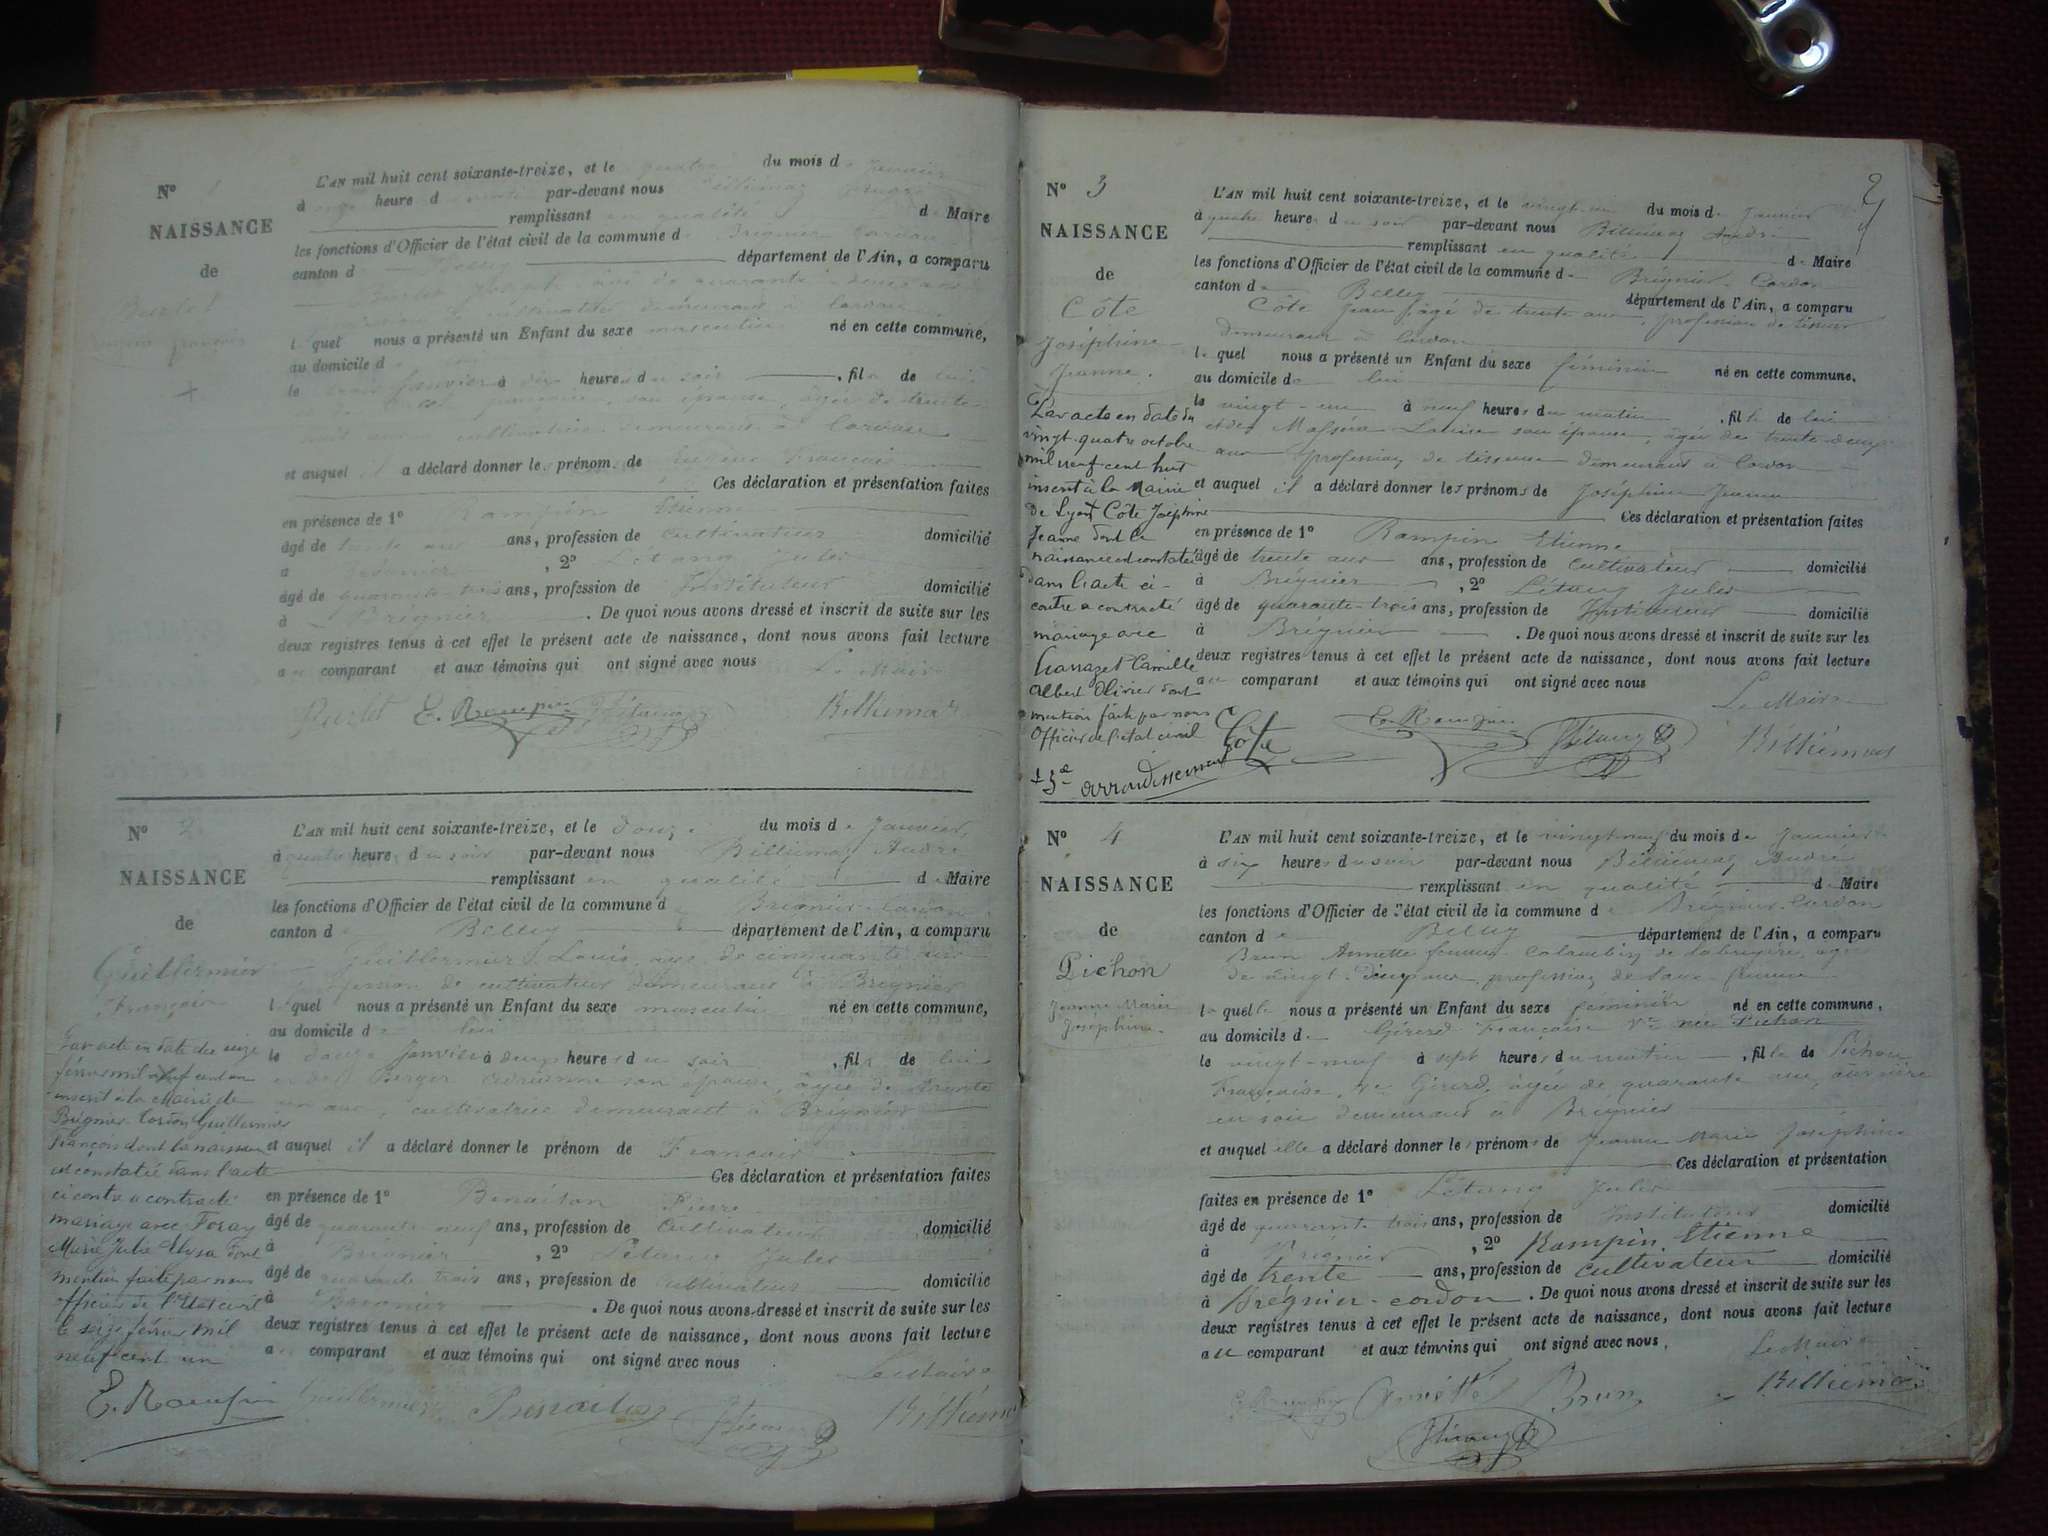 N° 1
NAISSANCE
de
Burlet
français
L'AN mil huit cent soixante-treize, et le quatre du mois de Janvier
à onze heure d par-devant nous Billiémaz André
remplissant en qualité de Maire
les fonctions d'Officier de l'état civil de la commune de Brégnier Cordon
canton de Belley département de l'Ain, a comparu
Burlet âgé de quarante-deux ans
cultivateur demeurant à Cordon
lequel nous a présenté un Enfant du sexe masculin né en cette commune,
au domicile de lui
le trois Janvier à heures du soir, fils de lui
son épouse, âgée de trente-
huit ans cultivatrice demeurant à Cordon
et auquel il a déclaré donner les prénoms de François
Ces déclaration et présentation faites
en présence de 1° Rampin Etienne
âgé de trente ans ans, profession de cultivateur domicilié
à Brégnier, 2° Létang Jules
âgé de quarante-trois ans, profession de Instituteur domicilié
à Brégnier. De quoi nous avons dressé et inscrit de suite sur les
deux registres tenus à cet effet le présent acte de naissance, dont nous avons fait lecture
au comparant et aux témoins qui ont signé avec nous
Le Maire
Burlet E. Rampin JLétang Billiémaz
N° 2
NAISSANCE
de
Guillermier
François
Par acte en date du seize
février mil neuf cent un
inscrit à la mairie de
Brégnier Cordon Guillermier
François dont la naissance
est constatée dans l'acte
ci contre a contracté
mariage avec Foray
Marie Julie Elvsa dont
mention faite par nous
officier de l'Etat civil
le seize février mil
neuf cent un
E. Rampin
L'AN mil huit cent soixante-treize, et le douze du mois de Janvier
à quatre heures du soir par-devant nous Billiémaz André
remplissant en qualité de Maire
les fonctions d'Officier de l'état civil de la commune de Brégnier-Cordon
canton de Belley département de l'Ain, a comparu
Guillermier Louis, âgé de cinquante ans
profession de cultivateur demeurant à Brégnier
lequel nous a présenté un Enfant du sexe masculin né en cette commune,
au domicile de lui
le douze Janvier à deux heures du soir, fils de lui
et de Berger Adrienne son épouse, âgée de trente
un ans, cultivatrice demeurant à Brégnier
et auquel il a déclaré donner le prénom de François
Ces déclaration et présentation faites
en présence de 1° Benaiton Pierre
âgé de quarante neuf ans, profession de cultivateur domicilié
à Brégnier, 2° Létang Jules
âgé de quarante trois ans, profession de cultivateur domicilié
à Brégnier. De quoi nous avons dressé et inscrit de suite sur les
deux registres tenus à cet effet le présent acte de naissance, dont nous avons fait lecture
au comparant et aux témoins qui ont signé avec nous
Le Maire
Guillermier Benaiton JLétang Billiémaz
2
N° 3
NAISSANCE
de
Côte
Joséphine-
Jeanne.
Par acte en date du
vingt-quatre octobre
mil neuf cent huit
inscrit à la Mairie
de Lyon + Côte Joséphine
Jeanne dont la
naissance est constatée
dans l'acte ci-
contre a contracté
mariage avec
Camille
Albert Olivier dont
mention faite par nous
Officier de l'état civil
+ 5e arrondissement
L'AN mil huit cent soixante-treize, et le vingt-un du mois de Janvier
à quatre heures du soir par-devant nous Billiémaz André
remplissant en qualité de Maire
les fonctions d'Officier de l'état civil de la commune de Brégnier-Cordon
canton de Belley département de l'Ain, a comparu
Côte Jean, âgé de trente ans, profession de tisseur
demeurant à Cordon
lequel nous a présenté un Enfant du sexe féminin né en cette commune.
au domicile de lui
le vingt-un à neuf heures du matin, fille de lui
et de Louise son épouse, âgée de trente-deux
ans profession de tisseuse demeurant à Cordon
et auquel il a déclaré donner les prénoms de Joséphine Jeanne
Ces déclaration et présentation faites
en présence de 1° Rampin Etienne
âgé de trente ans ans, profession de cultivateur domicilié
à Brégnier, 2° Létang Jules
âgé de quarante-trois ans, profession de Instituteur domicilié
à Brégnier. De quoi nous avons dressé et inscrit de suite sur les
deux registres tenus à cet effet le présent acte de naissance, dont nous avons fait lecture
au comparant et aux témoins qui ont signé avec nous
Le Maire
Côte E. Rampin JLétang Billiémaz
N° 4
NAISSANCE
de
Pichon
Jeanne Marie
Joséphine.
L'AN mil huit cent soixante-treize, et le vingt neuf du mois de Janvier
à six heures du soir par-devant nous Billiémaz André
remplissant en qualité de Maire
les fonctions d'Officier de l'état civil de la commune de Brégnier-Cordon
canton de Belley département de l'Ain, a comparu
Brun Annette femme Colombin de labruyère, âgée
de vingt-deux ans, profession de sage femme
laquelle nous a présenté un Enfant du sexe féminin né en cette commune,
au domicile de Girerd Françoise Ve née Pichon
le vingt-neuf à sept heures du matin, fille de Pichon
Françoise, Ve Girerd, âgée de quarante ans, ouvrière
en soie demeurant à Brégnier
et auquel elle a déclaré donner les prénoms de Jeanne Marie Joséphine
Ces déclaration et présentation
faites en présence de 1° Létang Jules
âgé de quarante trois ans, profession de Instituteur domicilié
à Brégnier, 2° Rampin Etienne
âgé de trente ans, profession de cultivateur domicilié
à Brégnier-cordon. De quoi nous avons dressé et inscrit de suite sur les
deux registres tenus à cet effet le présent acte de naissance, dont nous avons fait lecture
au comparant et aux témoins qui ont signé avec nous,
Le Maire
E. Rampin Annette Brun Billiémaz
JLétang